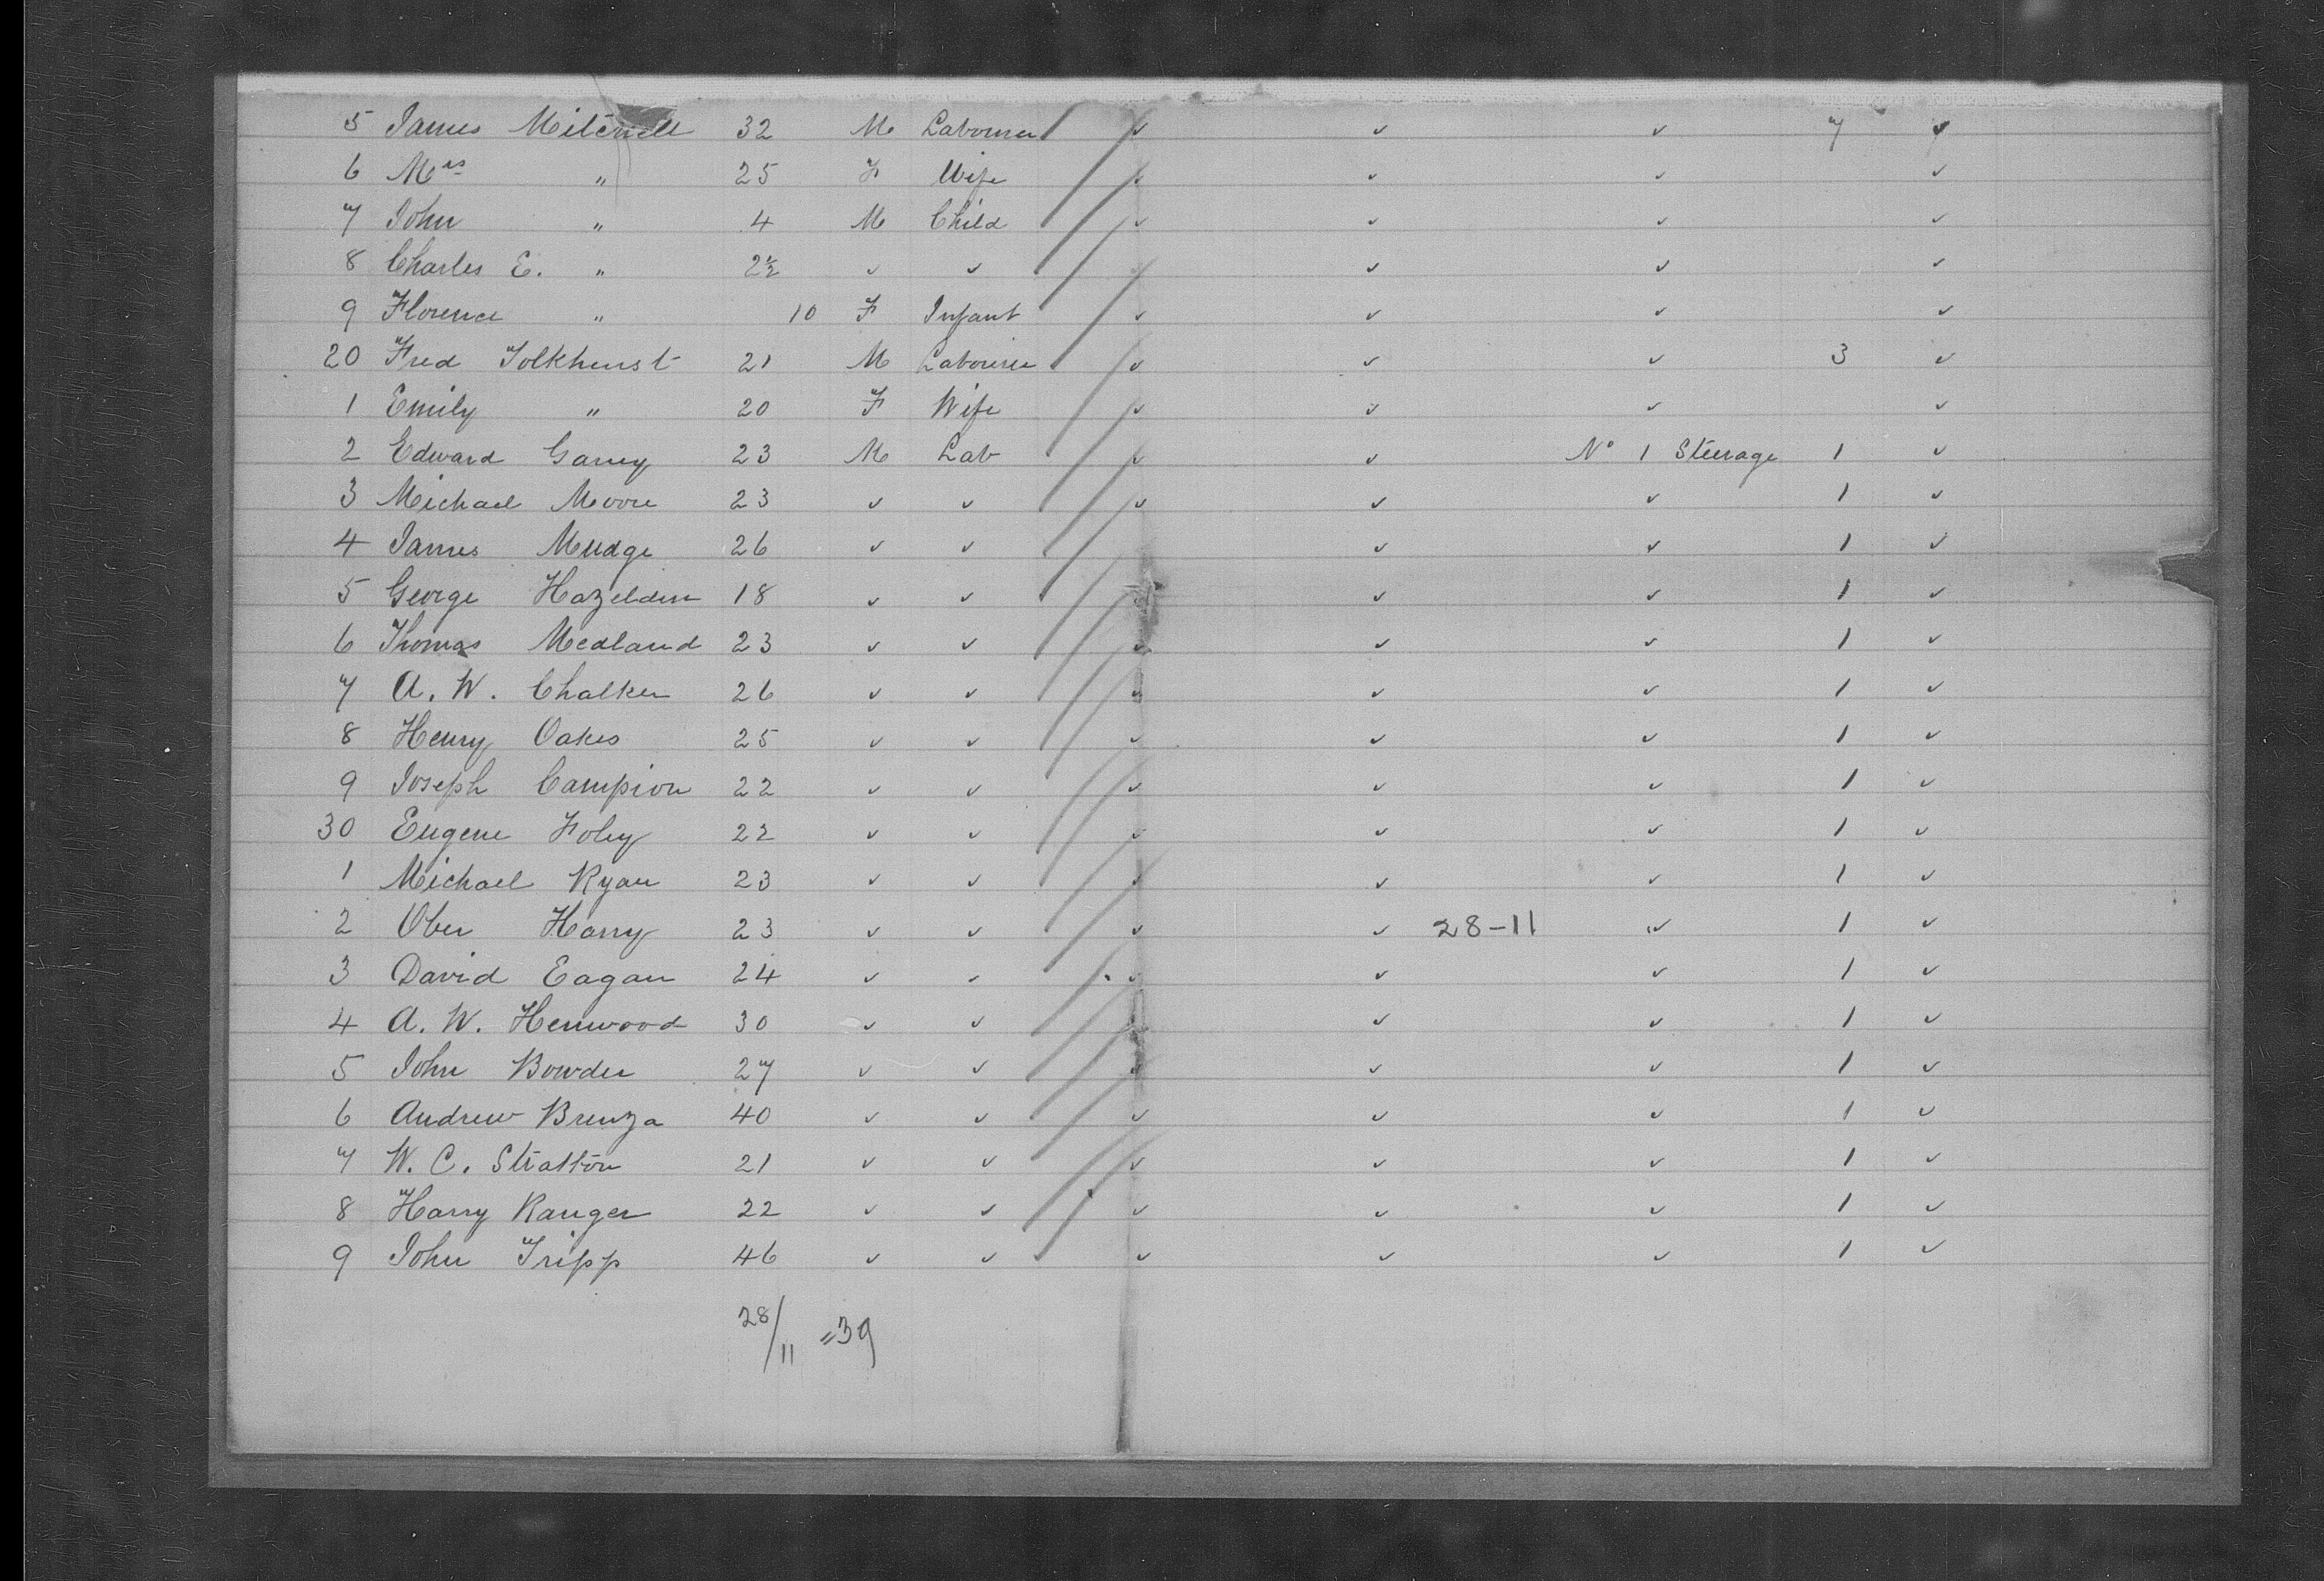 5 James Mitchell 32 M Labourer ✓ ✓ ✓ 7 ✓
6 Mrs " 25 F Wife ✓ ✓ ✓ ✓
7 John " 4 M Child ✓ ✓ ✓ ✓
8 Charles E. " 2½ ✓ ✓ ✓ ✓ ✓ ✓
9 Florence " 10 F Infant ✓ ✓ ✓ ✓
20 Fred Tolkhurst 21 M Labourer ✓ ✓ ✓ 3 ✓
1 Emily " 20 F Wife ✓ ✓ ✓ ✓
2 Edward Garvey 23 M Lab ✓ ✓ No 1 Steerage 1 ✓
3 Michael Moore 23 ✓ ✓ ✓ ✓ ✓ 1 ✓
4 James Mudge 26 ✓ ✓ ✓ ✓ 1 ✓
5 George Hazelden 18 ✓ ✓ ✓ ✓ ✓ 1 ✓
6 Thomas Medland 23 ✓ ✓ ✓ ✓ ✓ 1 ✓
7 A. W. Chalker 26 ✓ ✓ ✓ ✓ ✓ 1 ✓
8 Henry Oakes 25 ✓ ✓ ✓ ✓ ✓ 1 ✓
9 Joseph Campion 22 ✓ ✓ ✓ ✓ ✓ 1 ✓
30 Eugene Foley 22 ✓ ✓ ✓ ✓ ✓ 1 ✓
1 Michael Ryan 23 ✓ ✓ ✓ ✓ ✓ 1 ✓
2 Ober Harry 23 ✓ ✓ ✓ ✓ 28-11 ✓ 1 ✓
3 David Eagan 24 ✓ ✓ ✓ ✓ ✓ 1 ✓
4 A. W. Henwood 30 ✓ ✓ ✓ ✓ ✓ 1 ✓
5 John Bowder 27 ✓ ✓ ✓ ✓ ✓ 1 ✓
6 Andrew Brenza 40 ✓ ✓ ✓ ✓ ✓ 1 ✓
7 W. C. Stratton 21 ✓ ✓ ✓ ✓ ✓ 1 ✓
8 Harry Ranger 22 ✓ ✓ ✓ ✓ ✓ 1 ✓
9 John Tripp 46 ✓ ✓ ✓ ✓ ✓ 1 ✓
28/11 =39